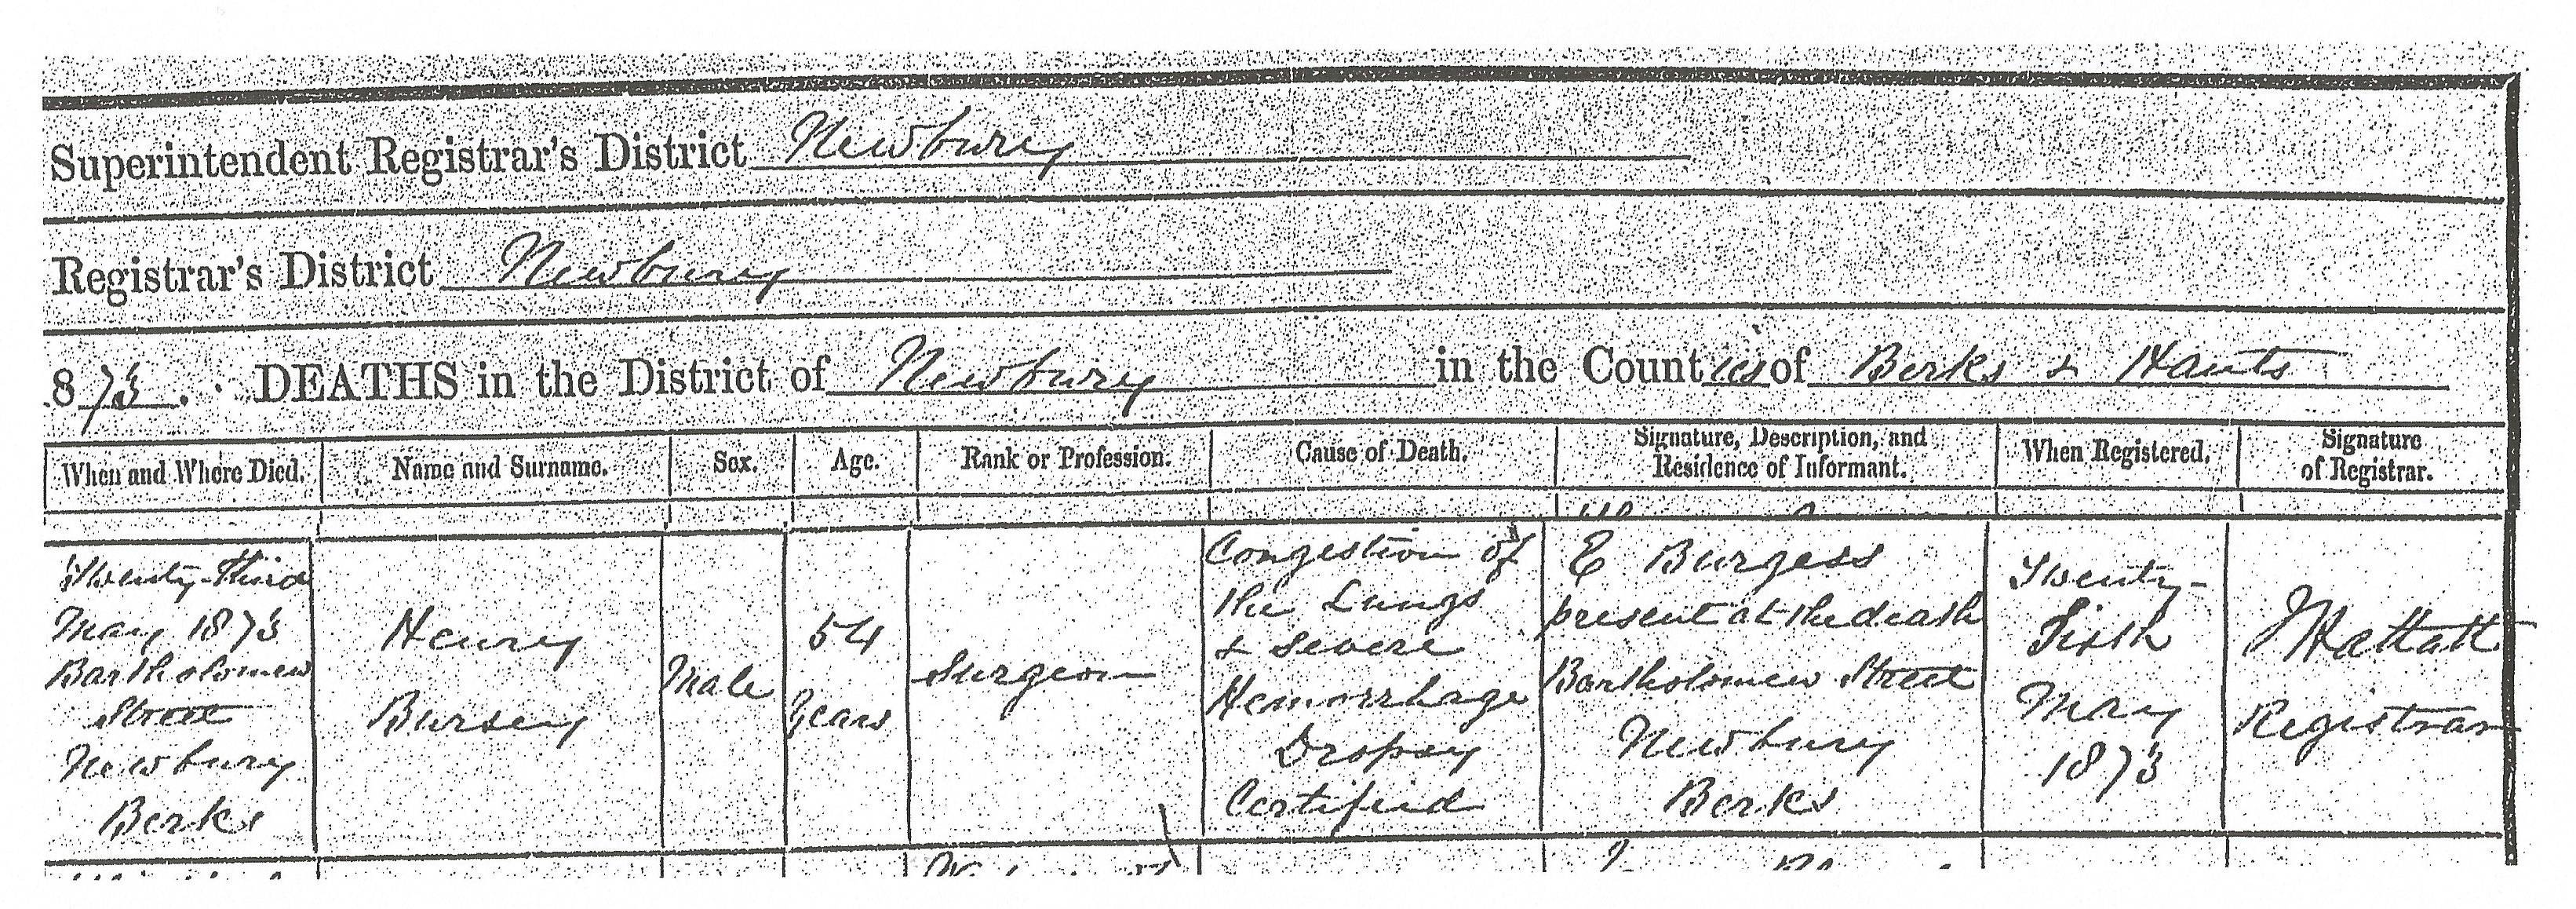 Superintendent Registrar's District Newbury
Registrar's District Newbury
873. DEATHS in the District of Newbury in the Counties of Berks & Hants
When and Where Died. Name and Surname. Sex. Age. Rank or Profession. Cause of Death. Signature, Description, and Residence of Informant. When Registered. Signature of Registrar.
Twenty-third
May 1873
Bartholomew
Street
Newbury
Berks
Henry
Bursey
Male
54
Years
Surgeon
Congestion of
the Lungs
& Severe
Hemorrhage
Dropsy
Certified
E Burgess
present at the death
Bartholomew Street
Newbury
Berks
Twenty-
May
1873
Registrar